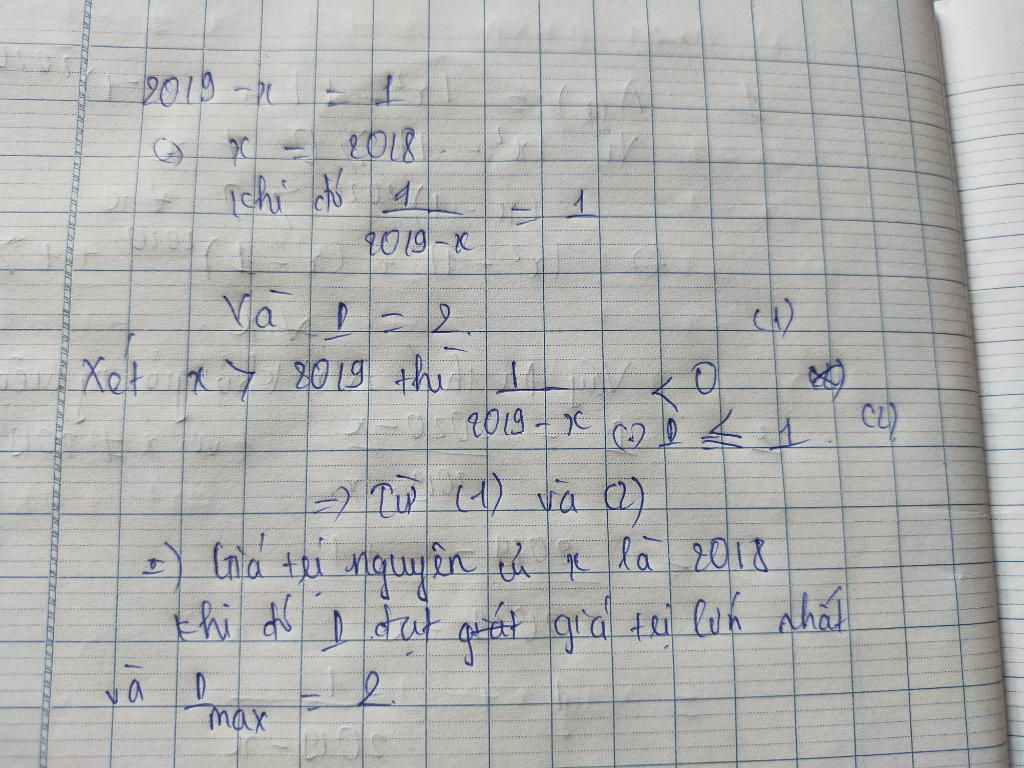 2019 - x = 1
(=) x = 2018.
Khi đó 1/(2019 - x) = 1
Và D = 2. (1)
Xét x > 2019 thì 1/(2019 - x) < 0
(=) D < 1. (2)
=) Từ (1) và (2)
=) Giá trị nguyên của x là 2018
Khi đó D đạt giá trị lớn nhất
và D max = 2.